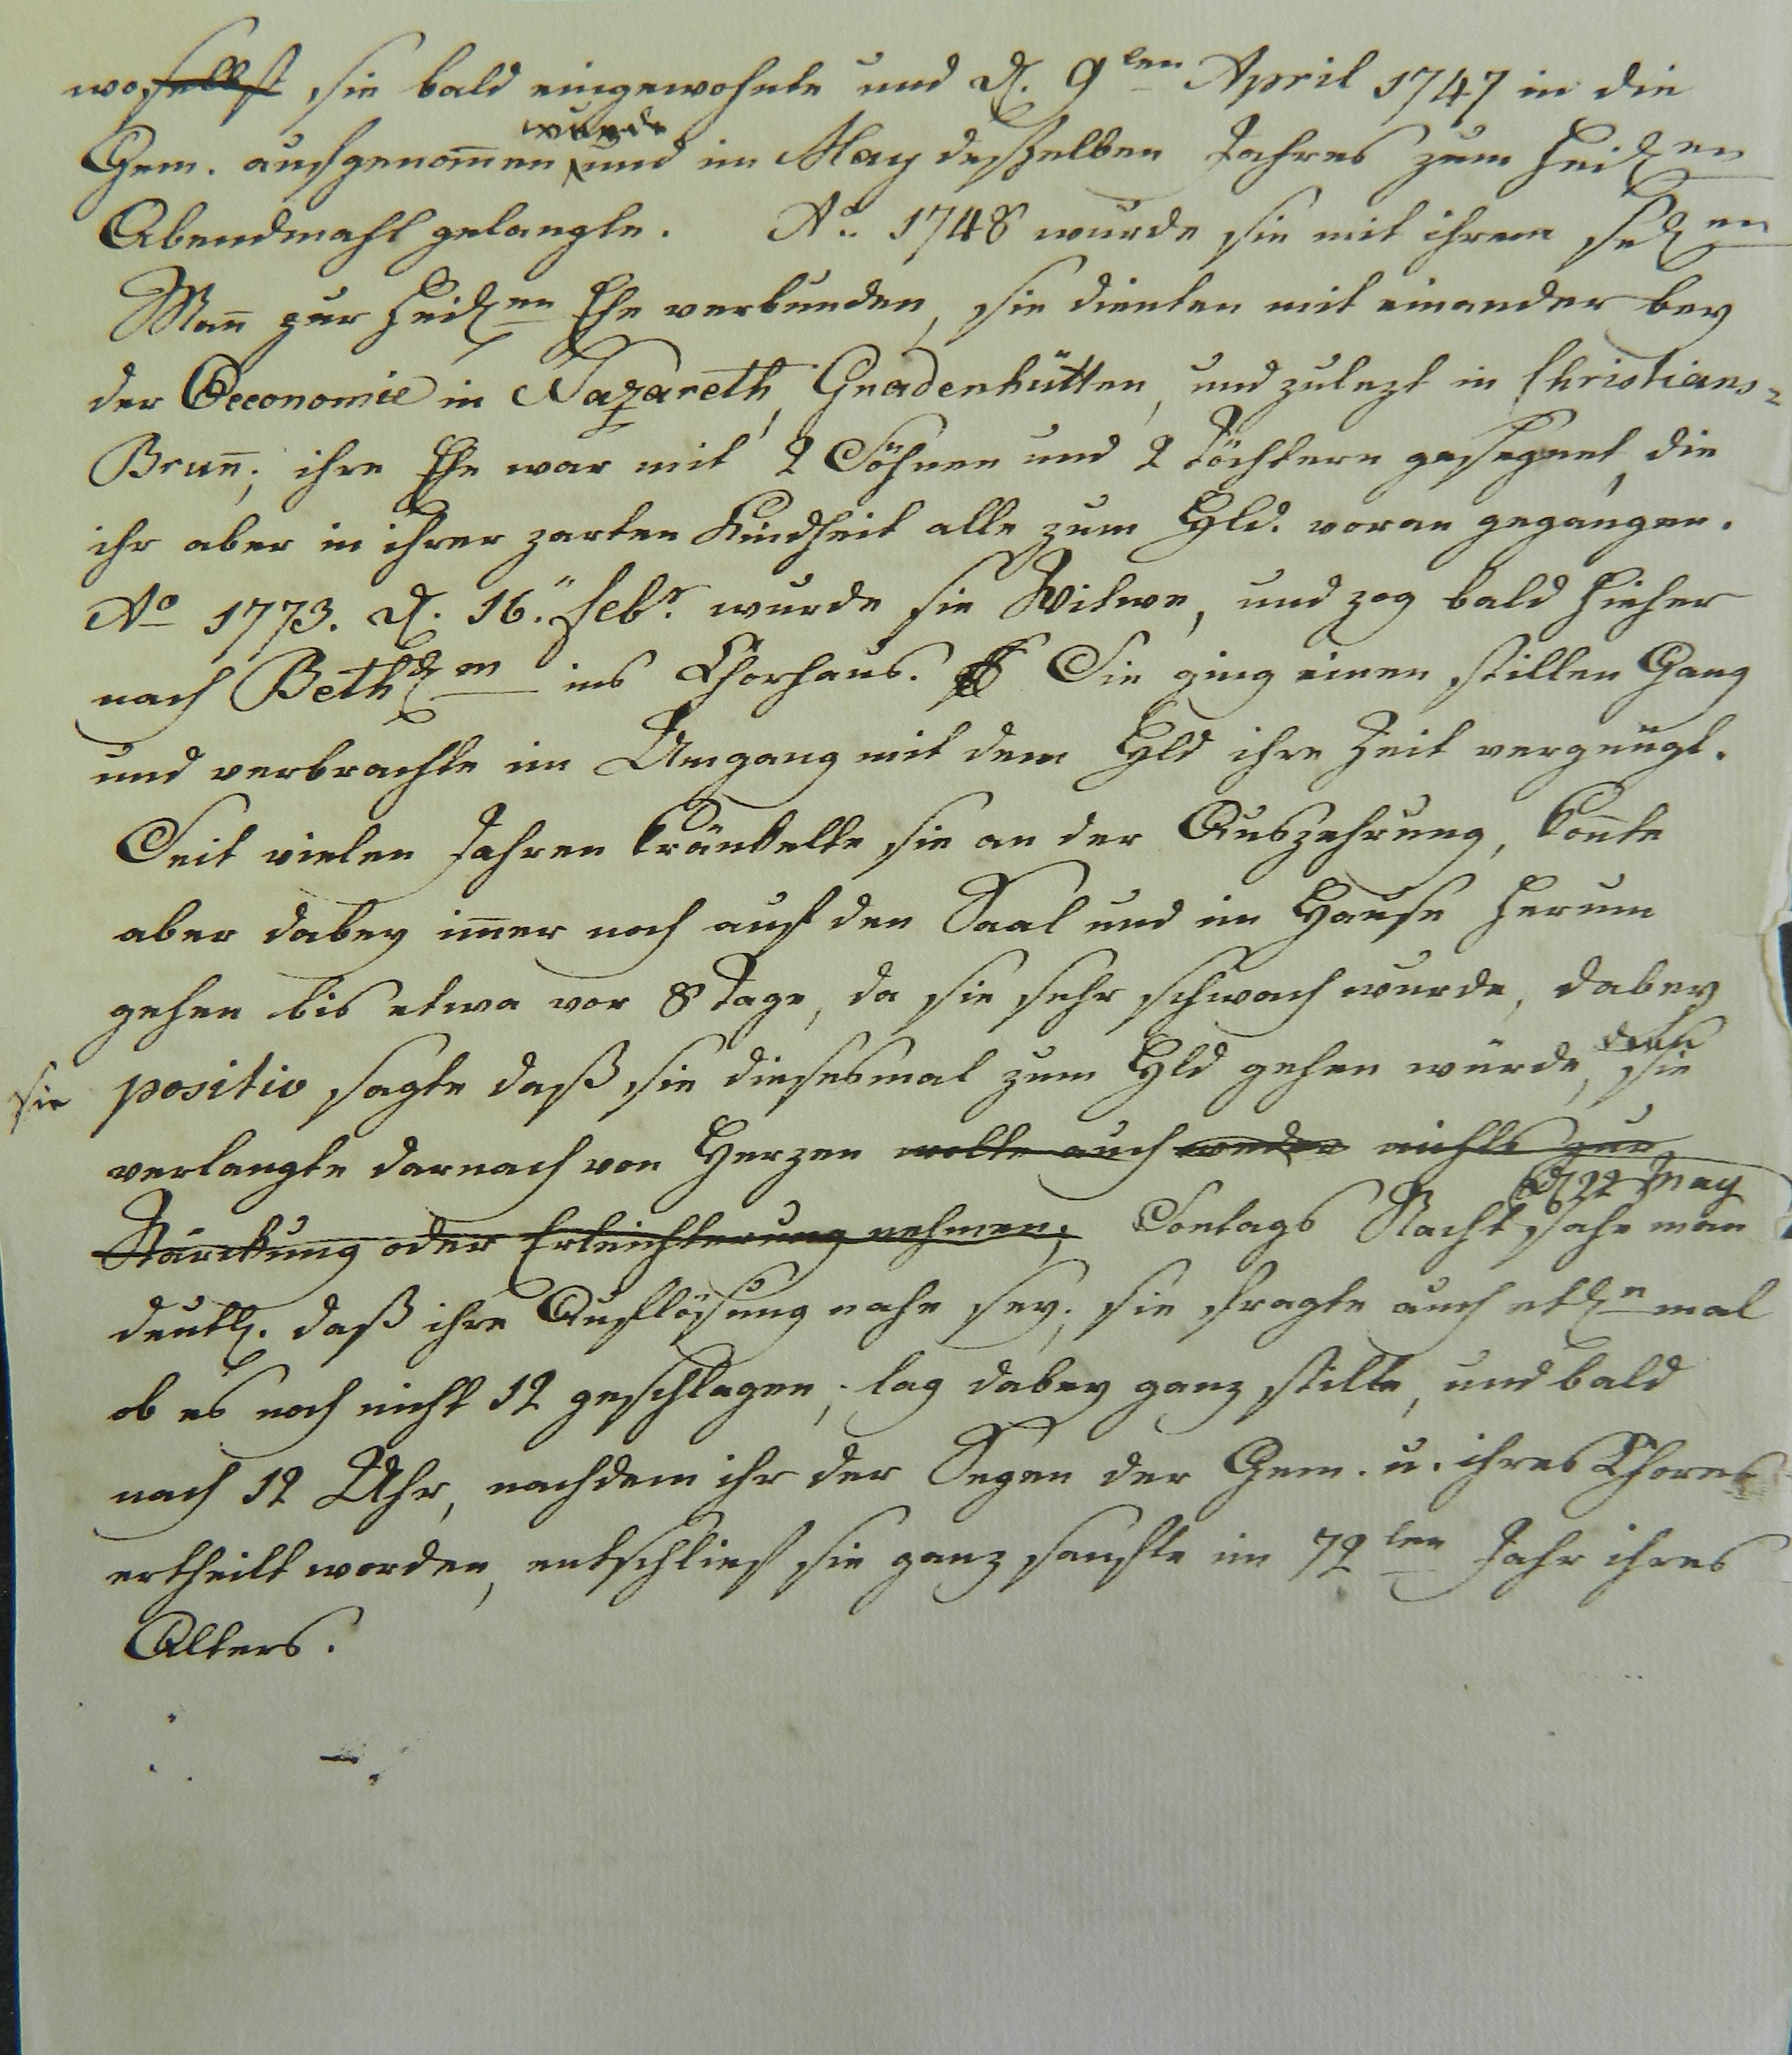 woselbst sie bald eingewohnte und d. 9ten April 1747 in die
wurde
Gem. aufgenom̄en und im May deßelben Jahres zum heilen
Abendmahl gelangte. Ao. 1748 wurde sie mit ihrem selen
Man̄ zur heilen Ehe verbunden, sie dienten mit einander bey
der Oeconomie in Nazareth, Gnadenhütten, und zulezt in Christians-
Brun̄; ihre Ehe war mit 2 Söhnen und 2 Töchtern gesegnet, die
ihr aber in ihrer zarten Kindheit alle zum Hld. voran gegangen.
Ao 1773. d. 16. Febr. wurde sie Witwe, und zog bald hieher
nach Bethlm ins Chorhaus. Sie ging einen stillen Gang
und verbrachte im Umgang mit dem Hld ihre Zeit vergnügt.
Seit vielen Jahren kränkelte sie an der Auszehrung, kon̄te
aber dabey im̄er noch auf den Saal und im Hause herum
gehen bis etwa vor 8 Tage, da sie sehr schwach wurde, dabey
denn
sie positiv sagte daß sie diesesmal zum Hld gehen würde, sie
verlangte darnach von Herzen wolte auch weder nichts zur
d 22 May
Stärckung oder Erleichterung nehmen; Sontags Nacht sahe man
deutl. daß ihre Auflösung nahe sey; sie fragte auch etlne mal
ob es noch nicht 12 geschlagen; lag dabey ganz stille, und bald
nach 12 Uhr, nachdem ihr der Segen der Gem. u. ihres Chores
ertheilt worden, entschlief sie ganz sanfte im 72ten Jahr ihres
Alters.